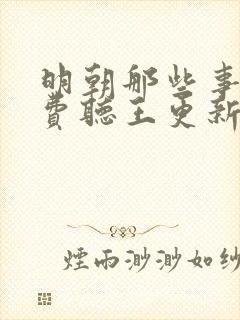 明朝那些事
費聽王更新
煙雨渺渺如纱